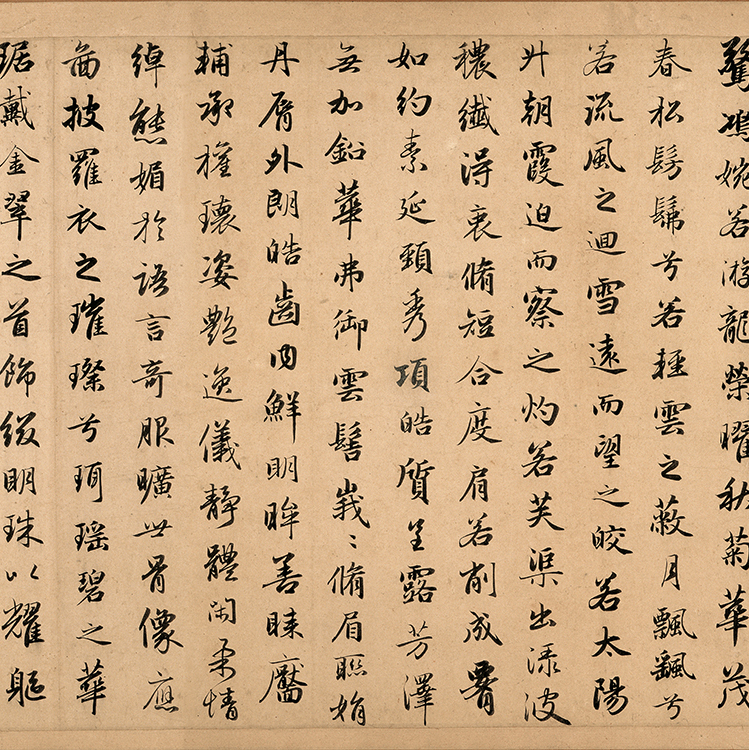 驚鴻婉若游龍榮曜秋菊華茂
春松髣髴兮若輕雲之蔽月飄颻兮
若流風之迴雪遠而望之皎若太陽
升朝霞迫而察之灼若芙渠出淥波
穠纖得衷脩短合度肩若削成腰
如約素延頸秀項皓質呈露芳澤
無加鉛華弗御雲髻峩〻脩眉聯娟
丹脣外朗皓齒內鮮明眸善睞靨
輔承權瓌姿艷逸儀靜體閑柔情
綽態媚於語言奇服曠世骨像應
圖披羅衣之璀璨兮珥瑤碧之華
琚戴金翠之首飾綴明珠以耀軀